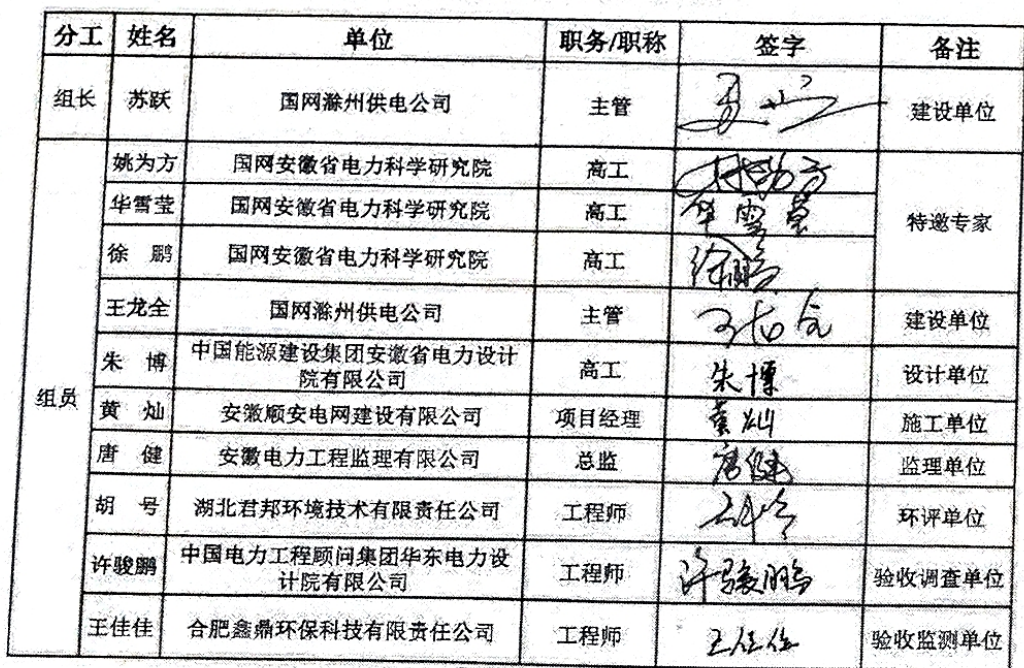 分工 姓名 单位 职务/职称 签字 备注
组长 苏跃 国网滁州供电公司 主管 建设单位
组员
姚为方 国网安徽省电力科学研究院 高工 特邀专家
华雪莹 国网安徽省电力科学研究院 高工 华雪莹
徐 鹏 国网安徽省电力科学研究院 高工 徐鹏
王龙全 国网滁州供电公司 主管 王龙全 建设单位
朱 博 中国能源建设集团安徽省电力设计
院有限公司 高工 朱博 设计单位
黄 灿 安徽顺安电网建设有限公司 项目经理 黄灿 施工单位
唐 健 安徽电力工程监理有限公司 总监 唐健 监理单位
胡 号 湖北君邦环境技术有限责任公司 工程师 环评单位
许骏鹏 中国电力工程顾问集团华东电力设
计院有限公司 工程师 许骏鹏 验收调查单位
王佳佳 合肥鑫鼎环保科技有限责任公司 工程师 王佳佳 验收监测单位